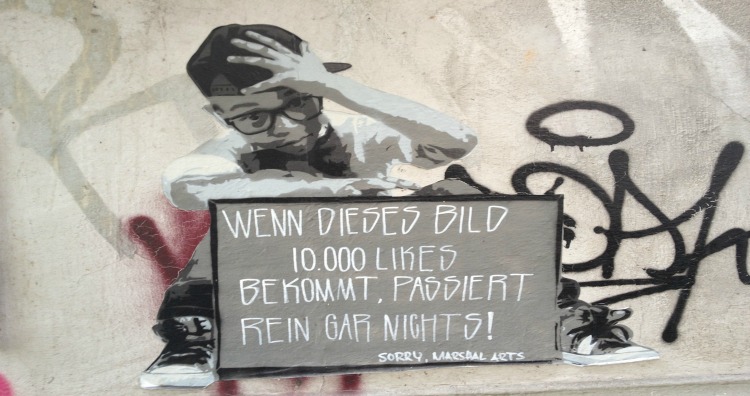 WENN DIESES BILD
10.000 LIKES
BEKOMMT, PASSIERT
REIN GAR NICHTS!
SORRY, MARSHAL ARTS